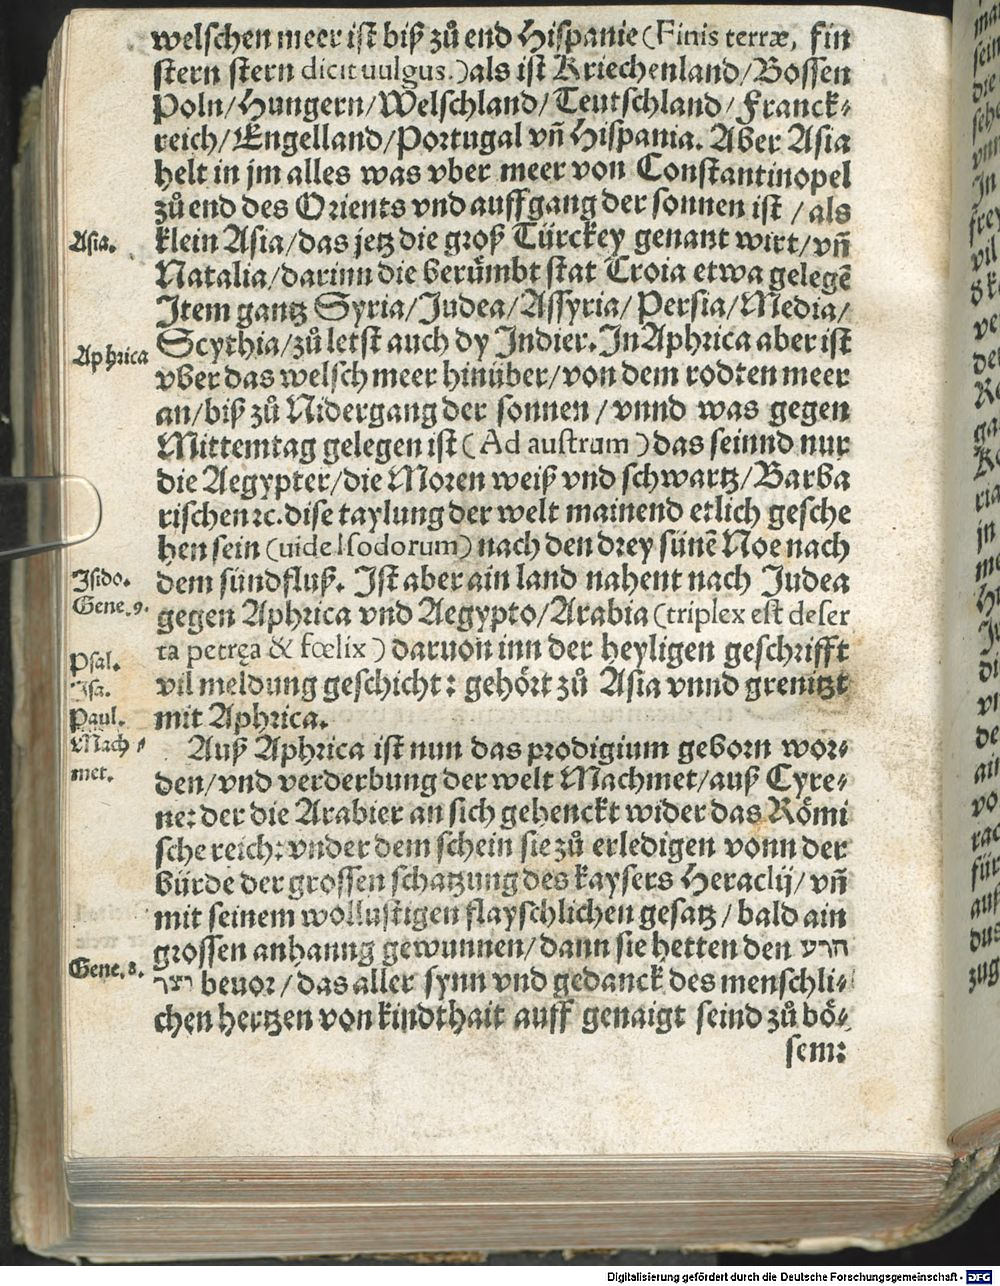 welschen meer ist biß zů end Hispanie (Finis terræ, fin
stern stern dicit uulgus.) als ist Kriechenland/Bossen
Poln/Hungern/Welschland/Teutschland/Franck⸗
reich/Engelland/Portugal vñ Hispania. Aber Asia
helt in jm alles was vber meer von Constantinopel
zů end des Orients vnd auffgang der sonnen ist/als
Asia.
klein Asia/das jetz die groß Türckey genant wirt/vñ
Natalia/darinn die berůmbt stat Troia etwa gelegẽ
Item gantz Syria/Judea/Assyria/Persia/Media/
Scythia/zů letst auch dy Indier. In Aphrica aber ist
Aphrica
vber das welsch meer hinüber/von dem rodten meer
an/biß zů Nidergang der sonnen/vnnd was gegen
Mittemtag gelegen ist (Ad austrum) das seinnd nur
die Aegypter/die Moren weiß vnd schwartz/Barba
rischen ꝛc. dise taylung der welt mainend etlich gesche
hen sein (uide Isodorum) nach den drey sünẽ Noe nach
Isido.
dem sündfluß. Ist aber ain land nahent nach Judea
Gene.9.
gegen Aphrica vnd Aegypto/Arabia (triplex est deser
ta petręa & fœlix) daruon inn der heyligen geschrifft
Psal.
Isa.
vil meldung geschicht: gehört zů Asia vnnd grenitzt
Paul.
mit Aphrica.
Mach⸗
met.
Auß Aphrica ist nun das prodigium geborn wor⸗
den/vnd verderbung der welt Machmet/auß Cyre⸗
ne: der die Arabier an sich gehenckt wider das Römi
sche reich: vnder dem schein sie zů erledigen vonn der
bürde der grossen schatzung des kaysers Heraclij/vñ
mit seinem wollustigen flayschlichen gesatz/bald ain
grossen anhanng gewunnen/dann sie hetten den הרע
Gene.8.
יצר beuor/das aller synn vnd gedanck des menschli⸗
chen hertzen von kindthait auff genaigt seind zů bö⸗
sem:
Digitalisierung gefördert durch die Deutsche Forschungsgemeinschaft - DFG